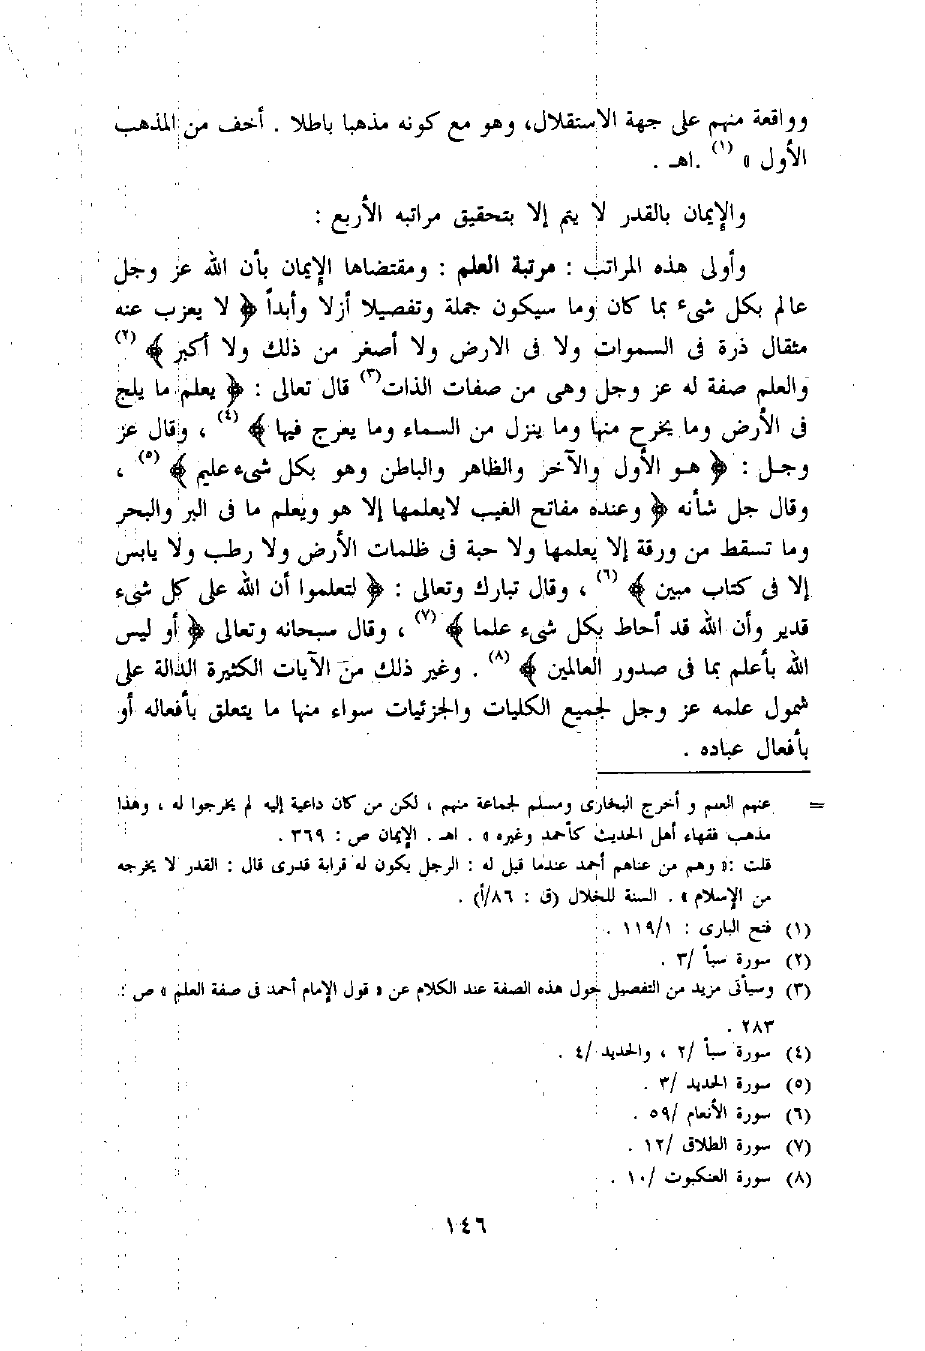 وواقعة منهم على جهة الاستقلال، وهو مع كونه مذهبا باطلا . أخف من المذهب
الأول » (١) .اهـ .
والإيمان بالقدر لا يتم إلا بتحقيق مراتبه الأربع :
وأولى هذه المراتب : مرتبة العلم : ومقتضاها الإيمان بأن الله عز وجل
عالم بكل شىء بما كان وما سيكون جملة وتفصيلا أزلا وأبداً ﴿ لا يعزب عنه
مثقال ذرة فى السموات ولا فى الارض ولا أصغر من ذلك ولا أكبر ﴾ (٢)
والعلم صفة له عز وجل وهى من صفات الذات(٣) قال تعالى : ﴿ يعلم ما يلج
فى الأرض وما يخرح منها وما ينزل من السماء وما يعرج فيها ﴾ (٤) ، وقال عز
وجل : ﴿ هو الأول والآخر والظاهر والباطن وهو بكل شىء عليم ﴾ (٥) ،
وقال جل شأنه ﴿ وعنده مفاتح الغيب لايعلمها إلا هو ويعلم ما فى البر والبحر
وما تسقط من ورقة إلا يعلمها ولا حبة فى ظلمات الأرض ولا رطب ولا يابس
إلا فى كتاب مبين ﴾ (٦) ، وقال تبارك وتعالى : ﴿ لتعلموا أن الله على كل شىء
قدير وأن الله قد أحاط بكل شىء علما ﴾ (٧) ، وقال سبحانه وتعالى ﴿ أو ليس
الله بأعلم بما فى صدور العالمين ﴾ (٨) . وغير ذلك من الآيات الكثيرة الدالة على
شمول علمه عز وجل لجميع الكليات والجزئيات سواء منها ما يتعلق بأفعاله أو
بأفعال عباده .
= عنهم العلم و أخرج البخارى ومسلم لجماعة منهم ، لكن من كان داعية إليه لم يخرجوا له ، وهذا
مذهب فقهاء أهل الحديث كأحمد وغيره » . اهـ . الإيمان ص : ٣٦٩ .
قلت :« وهم من عناهم أحمد عندما قيل له : الرجل يكون له قرابة قدرى قال : القدر لا يخرجه
من الإسلام » . السنة للخلال (ق : ٨٦/أ) .
(١) فتح البارى : ١١٩/١ .
(٢) سورة سبأ /٣ .
(٣) وسيأتى مزيد من التفصيل حول هذه الصفة عند الكلام عن « قول الإمام أحمد فى صفة العلم » ص :
٢٨٣ .
(٤) سورة سبأ /٢ ، والحديد /٤ .
(٥) سورة الحديد /٣ .
(٦) سورة الأنعام /٥٩ .
(٧) سورة الطلاق /١٢ .
(٨) سورة العنكبوت /١٠ .
١٤٦